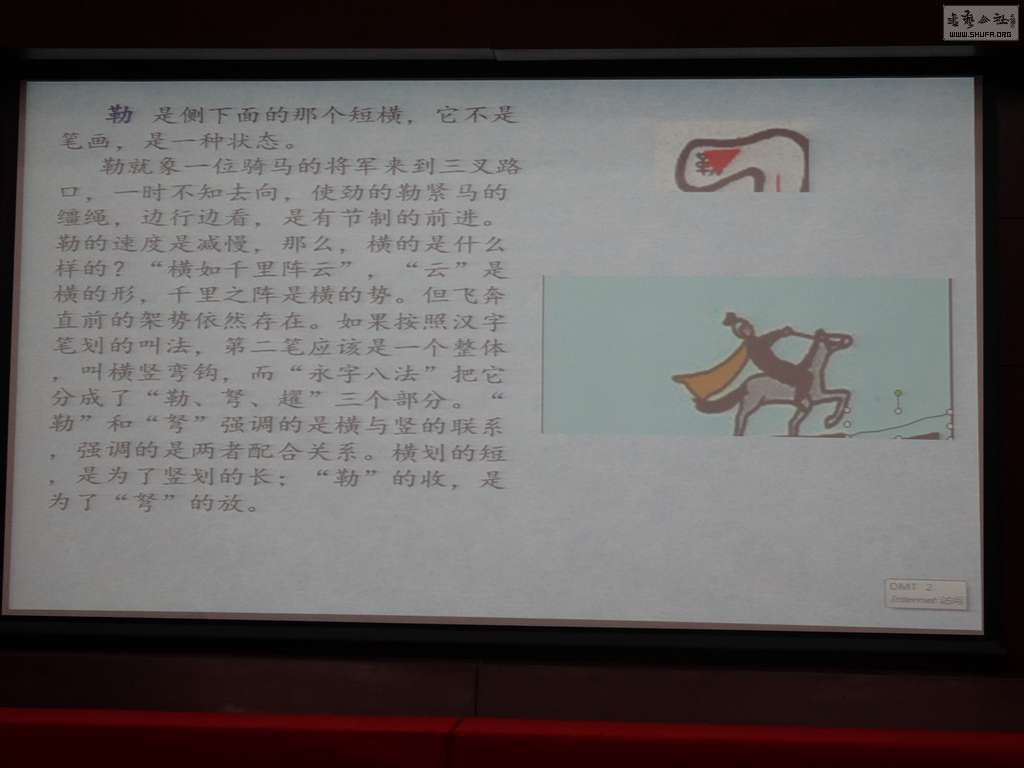 书艺公社
WWW.SHUFA.ORG
勒 是侧下面的那个短横，它不是
笔画，是一种状态。
勒就象一位骑马的将军来到三叉路
口，一时不知去向，使劲的勒紧马的
缰绳，边行边看，是有节制的前进。
勒的速度是减慢，那么，横的是什么
样的？“横如千里阵云”，“云”是
横的形，千里之阵是横的势。但飞奔
直前的架势依然存在。如果按照汉字
笔划的叫法，第二笔应该是一个整体
，叫横竖弯钩，而“永字八法”把它
分成了“勒、弩、趯”三个部分。“
勒”和“弩”强调的是横与竖的联系
，强调的是两者配合关系。横划的短
，是为了竖划的长；“勒”的收，是
为了“弩”的放。
勒
DMT 2
Internet 访问